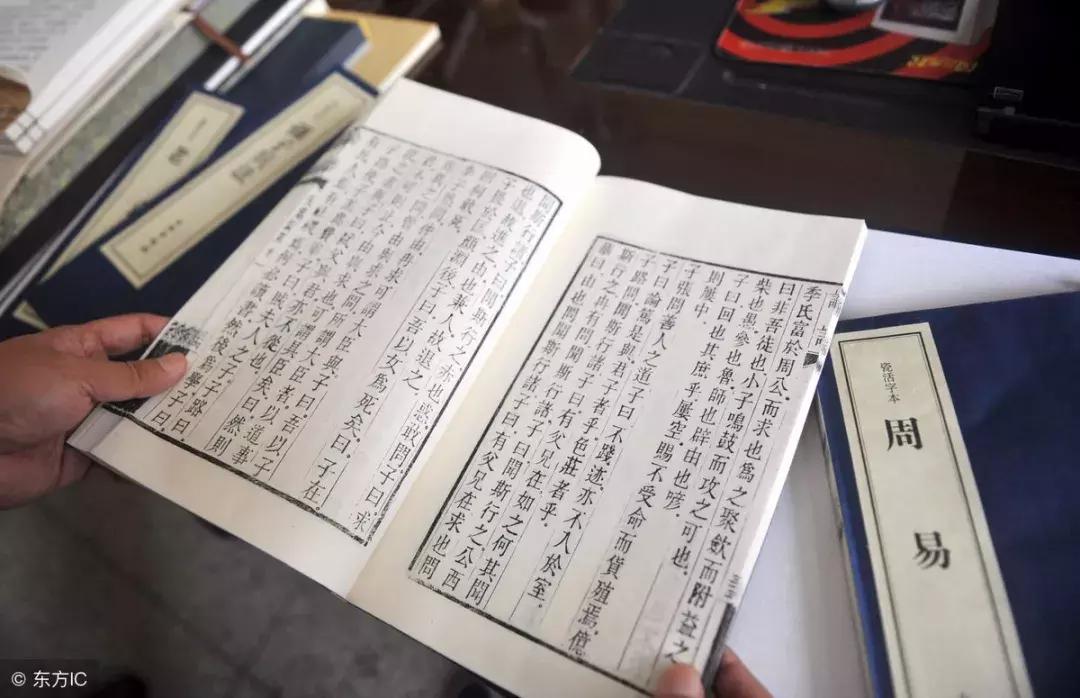 季氏富於周公而求也爲之聚斂而附益之
曰非吾徒也小子鳴鼓而攻之可也
柴也愚參也魯師也辟由也喭
子曰回也其庶乎屢空賜不受命而貨殖焉億
則屢中
子張問善人之道子曰不踐迹亦不入於室
子曰論篤是與君子者乎色莊者乎
子路問聞斯行諸子曰有父兄在如之何其聞
斯行之冉有問聞斯行諸子曰聞斯行之公西
華曰由也問聞斯行諸子曰有父兄在求也問
聞斯行諸子曰聞斯行之赤也惑敢問子曰求
也退故進之由也兼人故退之
子畏於匡顏淵後子曰吾以女爲死矣曰子在
回何敢死
季子然問仲由冉求可謂大臣與子曰吾以子
爲異之問曾由與求之問所謂大臣者以道事
君不可則止今由與求也可謂具臣矣曰然則
從之者與子曰弒父與君亦不從也
子路使子羔爲費宰子曰賊夫人之子子路曰
有民人焉有社稷焉何必讀書然後爲學子曰
瓷活字本
周易
© 东方IC